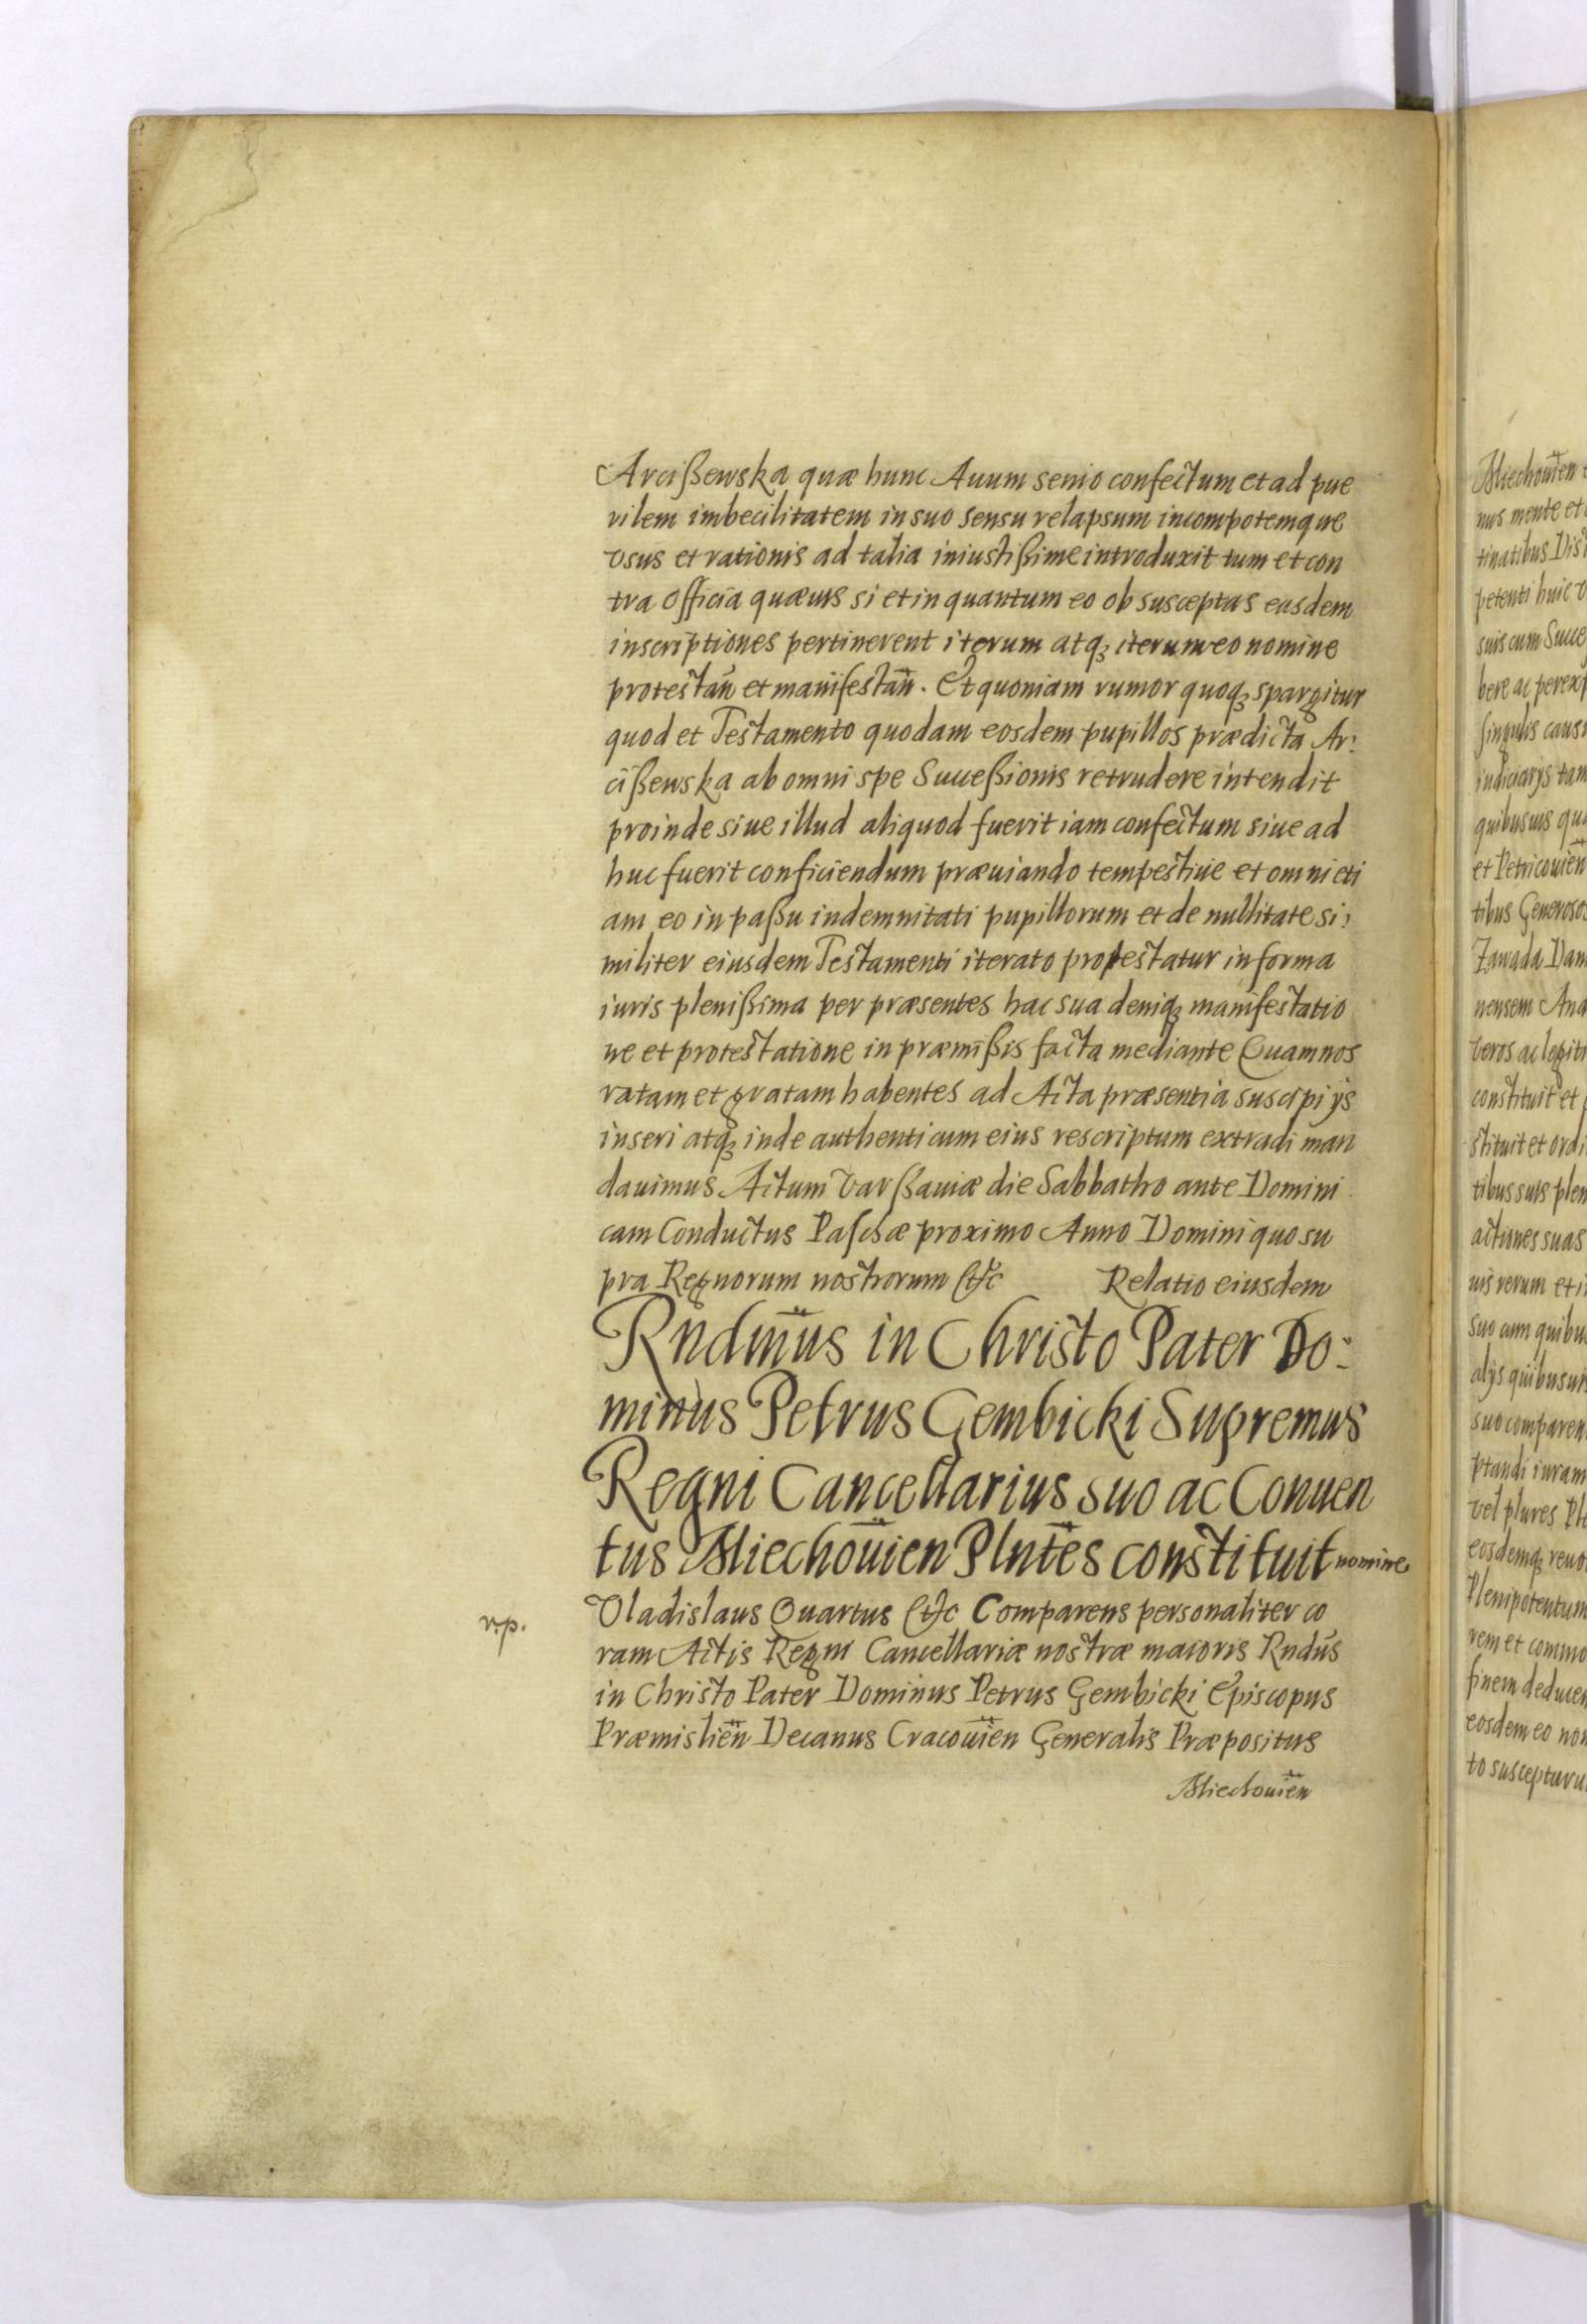 Arcißewska quæ hunc Auum senio confectum et ad pue
rilem imbecilitatem in suo sensu relapsum incompotemque
vsus et rationis ad talia iniustißime introduxit tum et con
tra Officia quæuis si et in quantum eo ob susceptas easdem
inscriptiones pertinerent iterum atqꝫ iterum eo nomine
protestañ et manifestañ. Et quoniam rumor quoqꝫ spargitur
quod et Testamento quodam eosdem pupillos prædicta Ar:
cißewska ab omni spe Suceßionis retrudere intendit
proinde siue illud aliquod fuerit iam confectum siue ad
huc fuerit conficiendum præuiando tempestiue et omni eti
am eo in paßu indemnitati pupillorum et de nullitate si:
militer eiusdem Testamenti iterato protestatur in forma
iuris plenißima per præsentes hac sua deniqꝫ manifestatio
ne et protestatione in præmißis facta mediante Quam nos
ratam et gratam habentes ad Acta præsentia suscipi ÿs
inseri atqꝫ inde authenticum eius rescriptum extradi man
dauimus Actum Varßauiæ die Sabbatho ante Domini
cam Conductus Paschæ proximo Anno Domini quo su
pra Regnorum nostrorum &c Relatio eiusdem
Rndm̃us in Christo Pater Do:
minus Petrus Gembicki Supremus
Regni Cancellarius suo ac Conuen
tus Miechouień Plnt̃es constituit nomine
r.p.
Vladislaus Quartus &c Comparens personaliter co
ram Actis Regni Cancellariæ nostræ maioris Rndus
in Christo Pater Dominus Petrus Gembicki Episcopus
Præmislień Decanus Cracouień Generalis Præpositus
Miechouień
Miechouień
nus mente et
tinatibus Dist
petenti huic
suis cum Succe
bere ac per ex
singulis causi
iudiciarÿs tam
quibusuis qu
et Petricouień
tibus Generoso
Zawada Dam
nensem And
veros ac legiti
constituit et
stituit et ordi
tibus suis plen
actiones suas
uis rerum et i
suo cum quibu
alÿs quibusuis
suo comparen
ptandi iuram
vel plures Pl
eosdemqꝫ reuo
Plenipotentum
rem et commo
finem deducen
eosdem eo no
to suscepturu